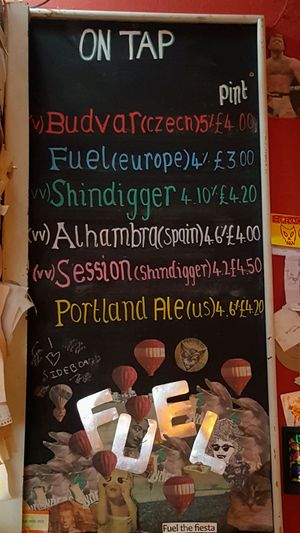 ON TAP
pint
(v) Budvar (czech) 5% £4.00
Fuel (europe) 4% £3.00
(vv) Shindigger 4.10% £4.20
(vv) Alhambra (spain) 4.6% £4.00
(vv) Session (Shindigger) 4.2% £4.50
Portland Ale (us) 4.6% £4.20
I
SIDEBOARD
FUEL
Fuel the fiesta